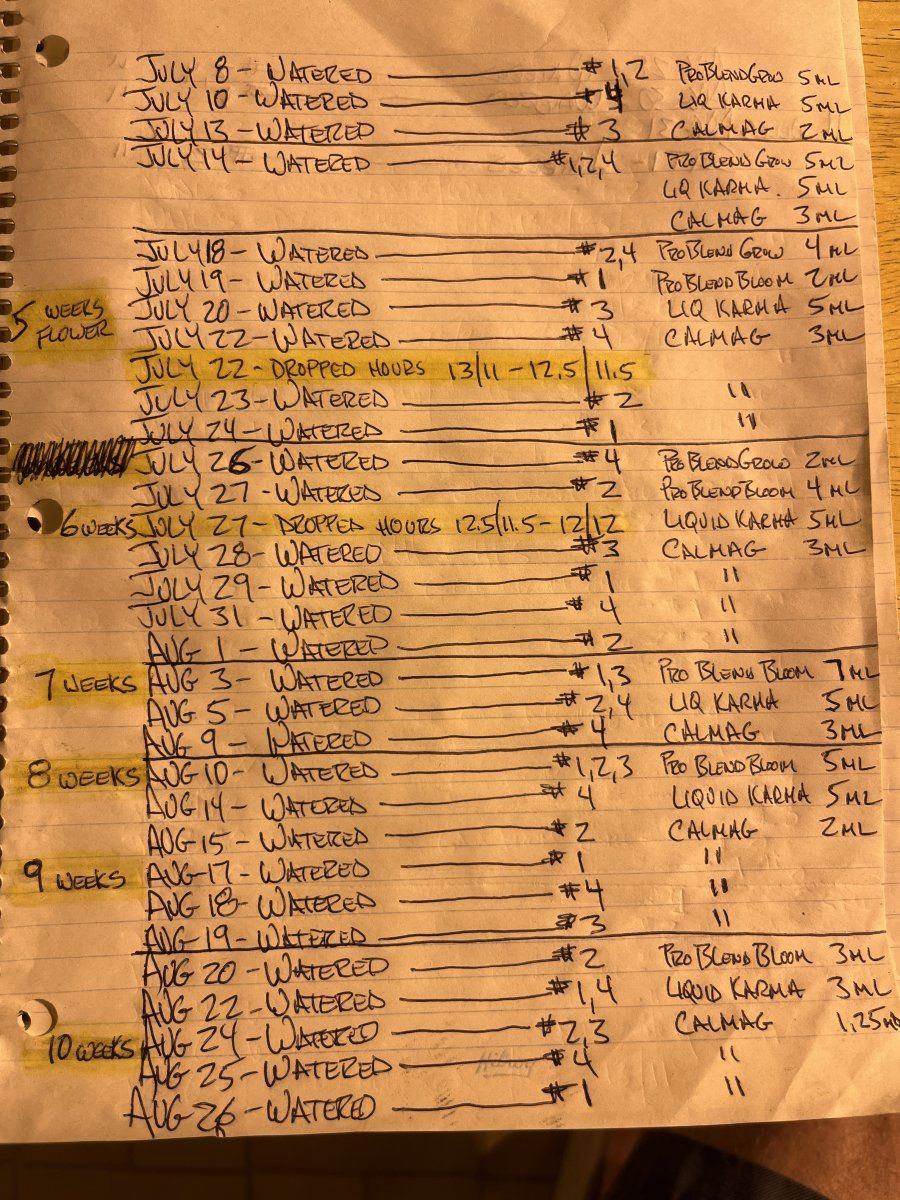 JULY 8 - WATERED #1,2 PROBLENDGROW 5ML
JULY 10 - WATERED #4 LIQ KARMA 5ML
JULY 13 - WATERED #3 CALMAG 2ML
JULY 14 - WATERED #1,2,4 PRO BLEND GROW 5ML
LIQ KARMA. 5ML
CALMAG 3ML
JULY 18 - WATERED #2,4 PROBLEND GROW 4ML
JULY 19 - WATERED #1 PROBLEND BLOOM 2ML
5 WEEKS FLOWER
JULY 20 - WATERED #3 LIQ KARMA 5ML
JULY 22 - WATERED #4 CALMAG 3ML
JULY 22 - DROPPED HOURS 13/11 - 12.5/11.5
JULY 23 - WATERED #2 "
JULY 24 - WATERED #1 "
JULY 26 - WATERED #4 PROBLENDGROW 2ML
JULY 27 - WATERED #2 PROBLENDBLOOM 4ML
6 WEEKS JULY 27 - DROPPED HOURS 12.5/11.5 - 12/12 LIQUID KARMA 5ML
JULY 28 - WATERED #3 CALMAG 3ML
JULY 29 - WATERED #1 "
JULY 31 - WATERED #4 "
AUG 1 - WATERED #2 "
7 WEEKS AUG 3 - WATERED #1,3 PRO BLEND BLOOM 7ML
AUG 5 - WATERED #2,4 LIQ KARMA 5ML
AUG 9 - WATERED #4 CALMAG 3ML
8 WEEKS AUG 10 - WATERED #1,2,3 PRO BLENDBLOOM 5ML
AUG 14 - WATERED #4 LIQUID KARMA 5ML
AUG 15 - WATERED #2 CALMAG 2ML
9 WEEKS AUG-17 - WATERED #1 "
AUG 18 - WATERED #4 "
AUG-19 - WATERED #3 "
AUG 20 - WATERED #2 PROBLENDBLOOM 3ML
AUG 22 - WATERED #1,4 LIQUID KARMA 3ML
10 WEEKS AUG 24 - WATERED #2,3 CALMAG 1,25ML
AUG 25 - WATERED #4 "
AUG 26 - WATERED #1 "
Hilroy